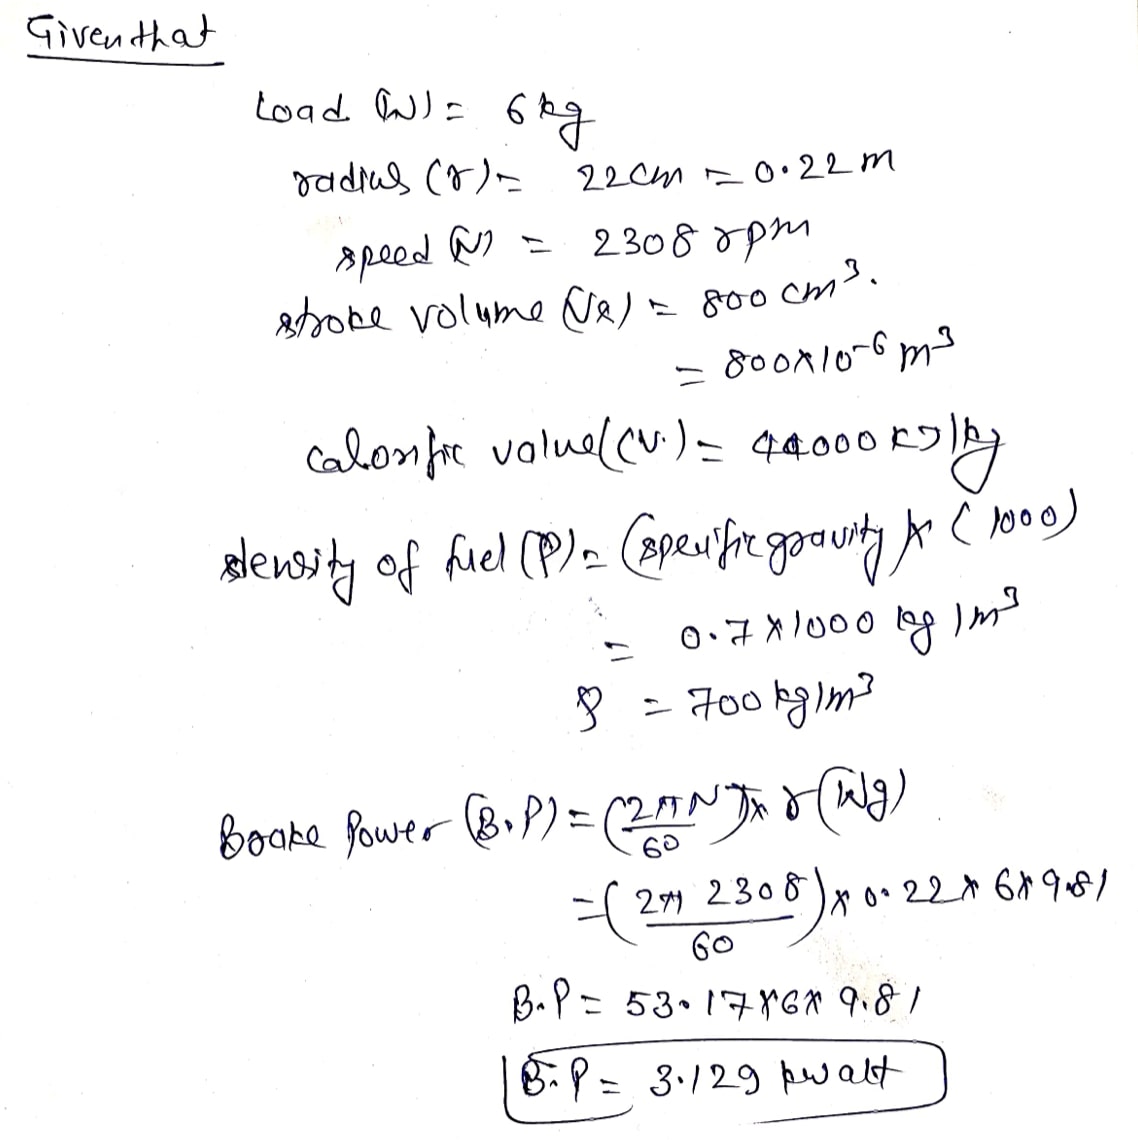 Given that
Load (W) = 6 kg
radius (r) = 22 cm = 0.22 m
speed (N) = 2308 rpm
stroke volume (Vs) = 800 cm³.
= 800×10⁻⁶ m³
calorific value (C.V.) = 44000 KJ/kg
density of fuel (ρ) = (specific gravity × (1000)
= 0.7×1000 kg/m³
ρ = 700 kg/m³
Brake Power (B.P) = (2πN/60) × r (Wg)
= (2π 2308/60) × 0.22 × 6×9.81
B.P = 53.17×6×9.81
B.P = 3.129 kwatt